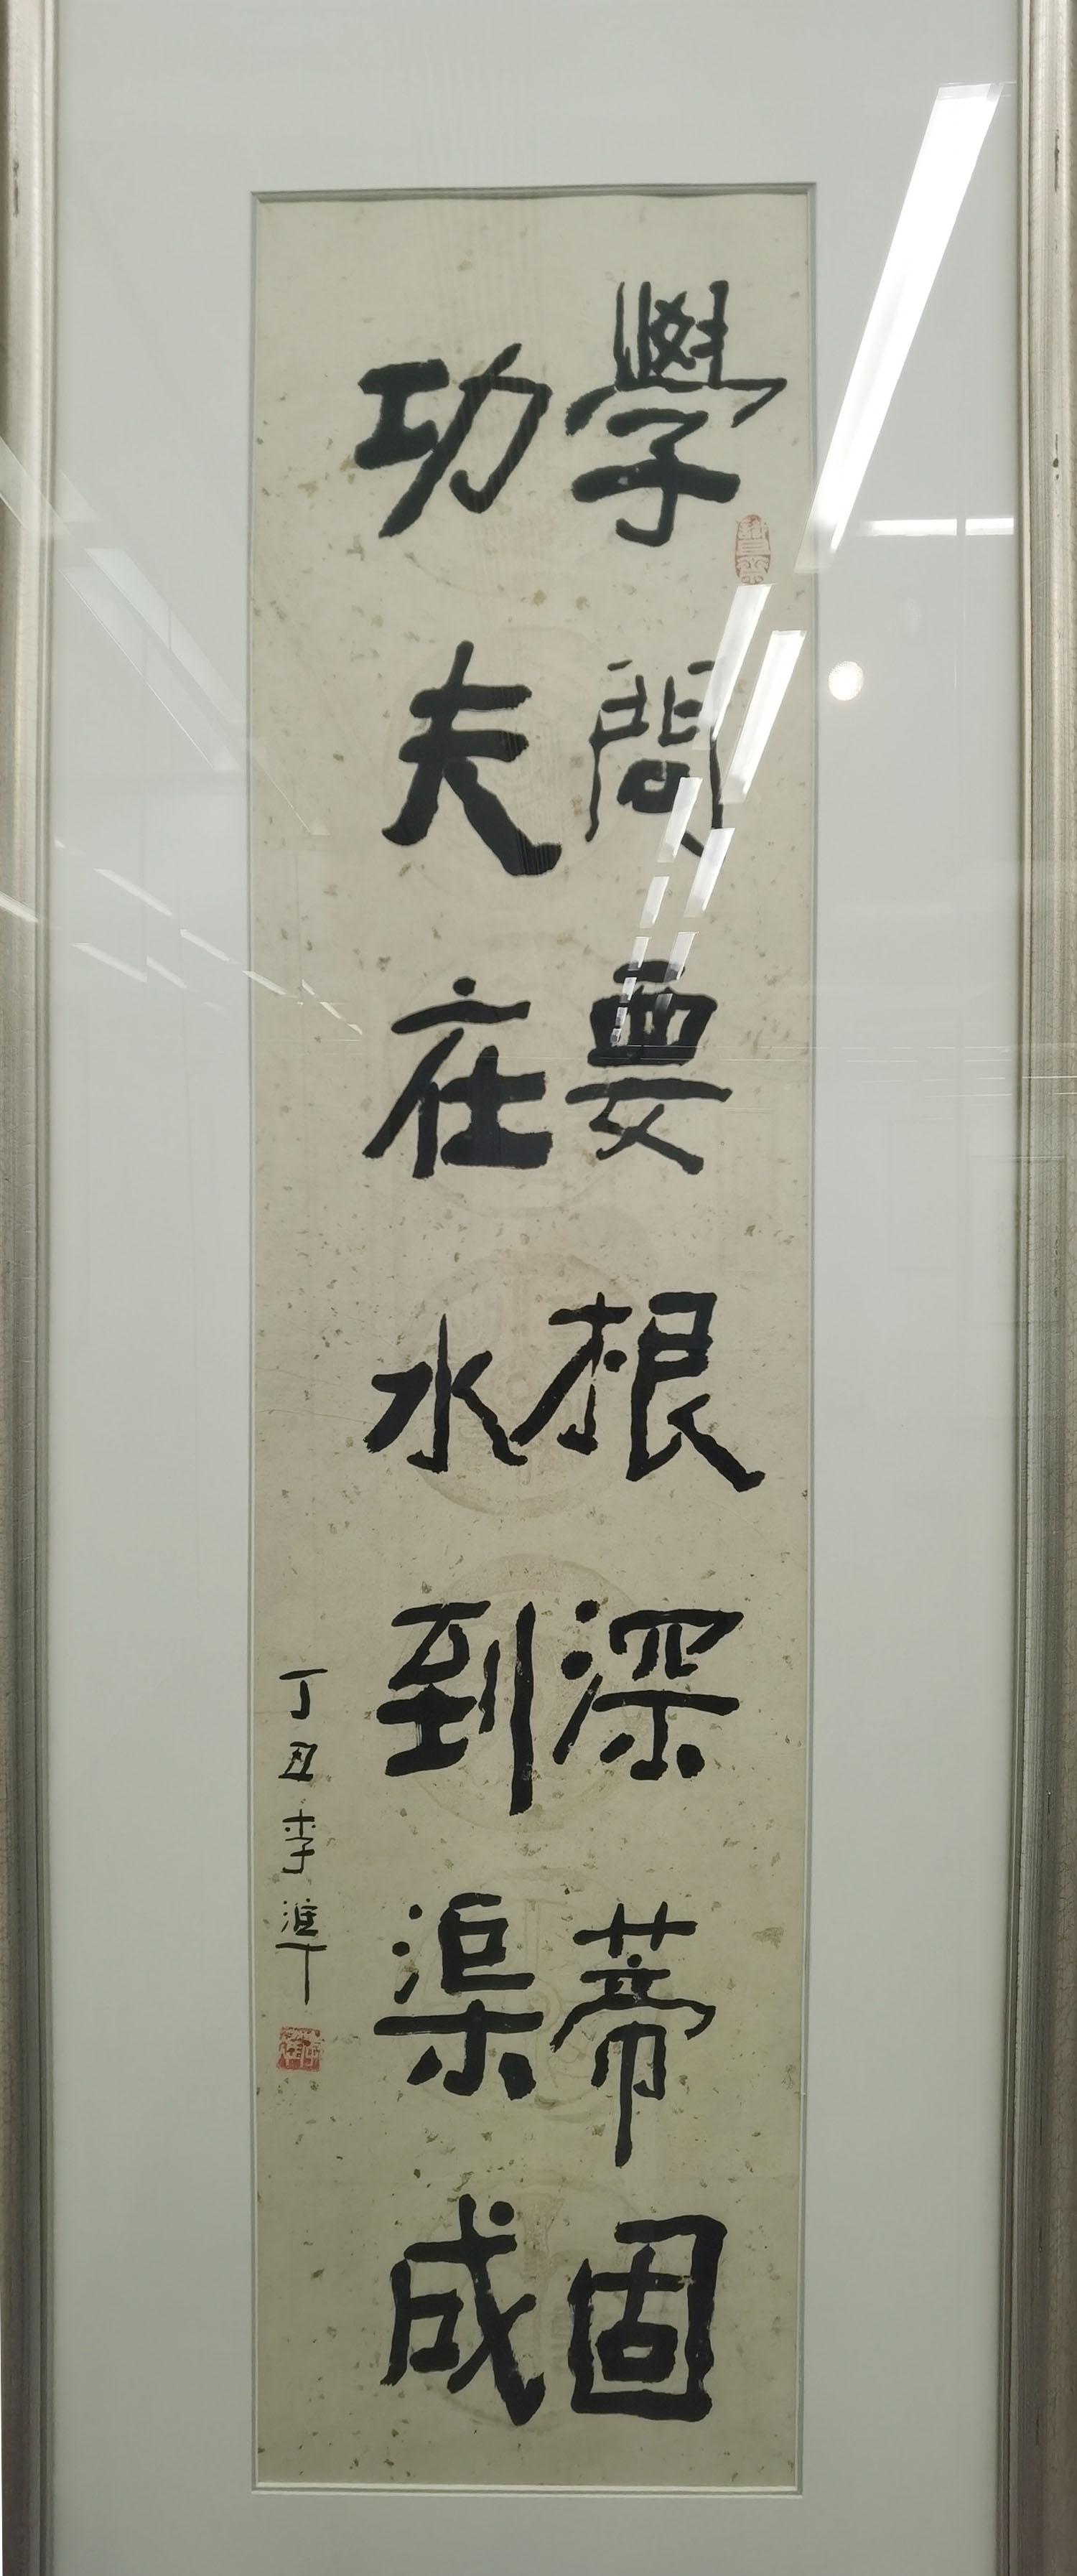 學問要根深蒂固
功夫在水到渠成
丁丑李準